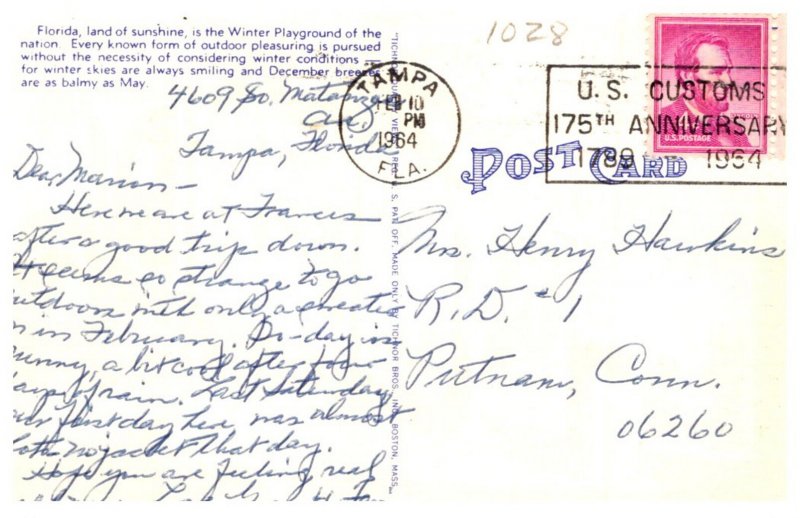 Florida, land of sunshine, is the Winter Playground of the
nation. Every known form of outdoor pleasuring is pursued
without the necessity of considering winter conditions —
for winter skies are always smiling and December breezes
are as balmy as May.
1028
TAMPA
FEB 10
PM
1964
FLA.
U.S. CUSTOMS
175TH ANNIVERSARY
1789 1964
U.S. POSTAGE
POST CARD
4609 So. Matanzas
Av.,
Tampa, Florida
Dear Marion—
Here we are at Frances
after a good trip down.
It seems so strange to go
outdoors with only a sweater
on in February. To-day is
sunny, a bit cool after four
days of rain. Last Saturday,
our first day here, was almost
hot. No jacket that day.
Hope you are feeling real
MADE ONLY BY TICHNOR BROS., INC., BOSTON, MASS.
Mrs. Henry Hawkins
R.D. #1
Putnam, Conn.
06260